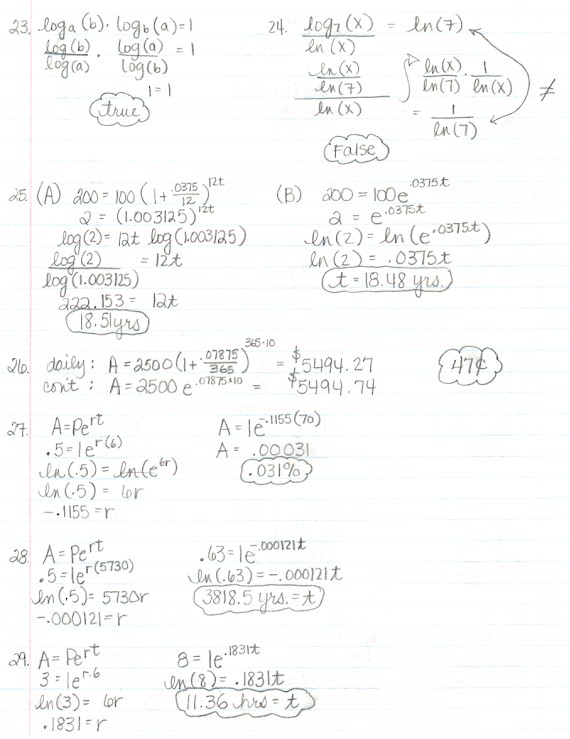 23. logₐ(b) · log_b(a) = 1
log(b)/log(a) · log(a)/log(b) = 1
1 = 1
true
24. log₇(x)/ln(x) = ln(7)
(ln(x)/ln(7))/ln(x)
ln(x)/ln(7) · 1/ln(x)
= 1/ln(7)
≠
False
25. (A) 200 = 100(1 + .0375/12)^12t
2 = (1.003125)^12t
log(2) = 12t log(1.003125)
log(2)/log(1.003125) = 12t
222.153 = 12t
18.51 yrs
(B) 200 = 100e^.0375t
2 = e^.0375t
ln(2) = ln(e^.0375t)
ln(2) = .0375t
t = 18.48 yrs.
26. daily: A = 2500(1 + .07875/365)^365·10 = $5494.27
con't: A = 2500e^.07875×10 = $5494.74
47¢
27. A = Pe^rt
.5 = 1e^r(6)
ln(.5) = ln(e^6r)
ln(.5) = 6r
-.1155 = r
A = 1e^-.1155(70)
A = .00031
.031%
28. A = Pe^rt
.5 = 1e^r(5730)
ln(.5) = 5730r
-.000121 = r
.63 = 1e^-.000121t
ln(.63) = -.000121t
3818.5 yrs. = t
29. A = Pe^rt
3 = 1e^r·6
ln(3) = 6r
.1831 = r
8 = 1e^.1831t
ln(8) = .1831t
11.36 hrs = t